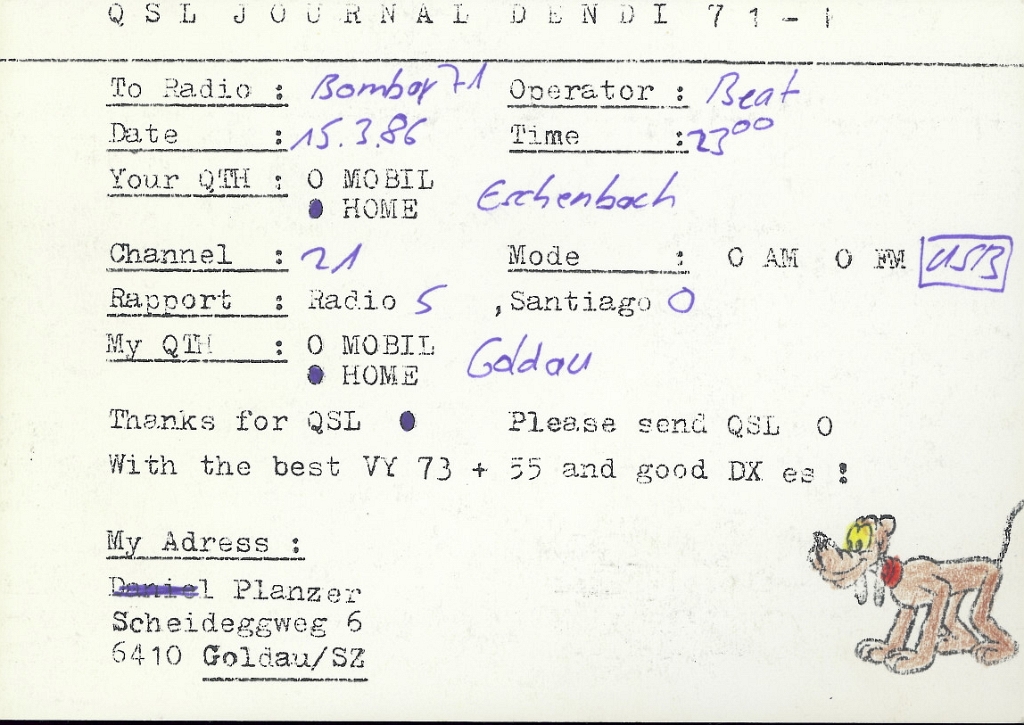 QSL JOURNAL DENDI 71-1
To Radio : Bombay 71 Operator : Beat
Date : 15.3.86 Time : 23⁰⁰
Your QTH : O MOBIL
● HOME Eschenbach
Channel : 21 Mode : O AM O FM USB
Rapport : Radio 5 ,Santiago 0
My QTH : O MOBIL
● HOME Goldau
Thanks for QSL ● Please send QSL O
With the best VY 73 + 55 and good DX es !
My Adress :
Daniel Planzer
Scheideggweg 6
6410 Goldau/SZ